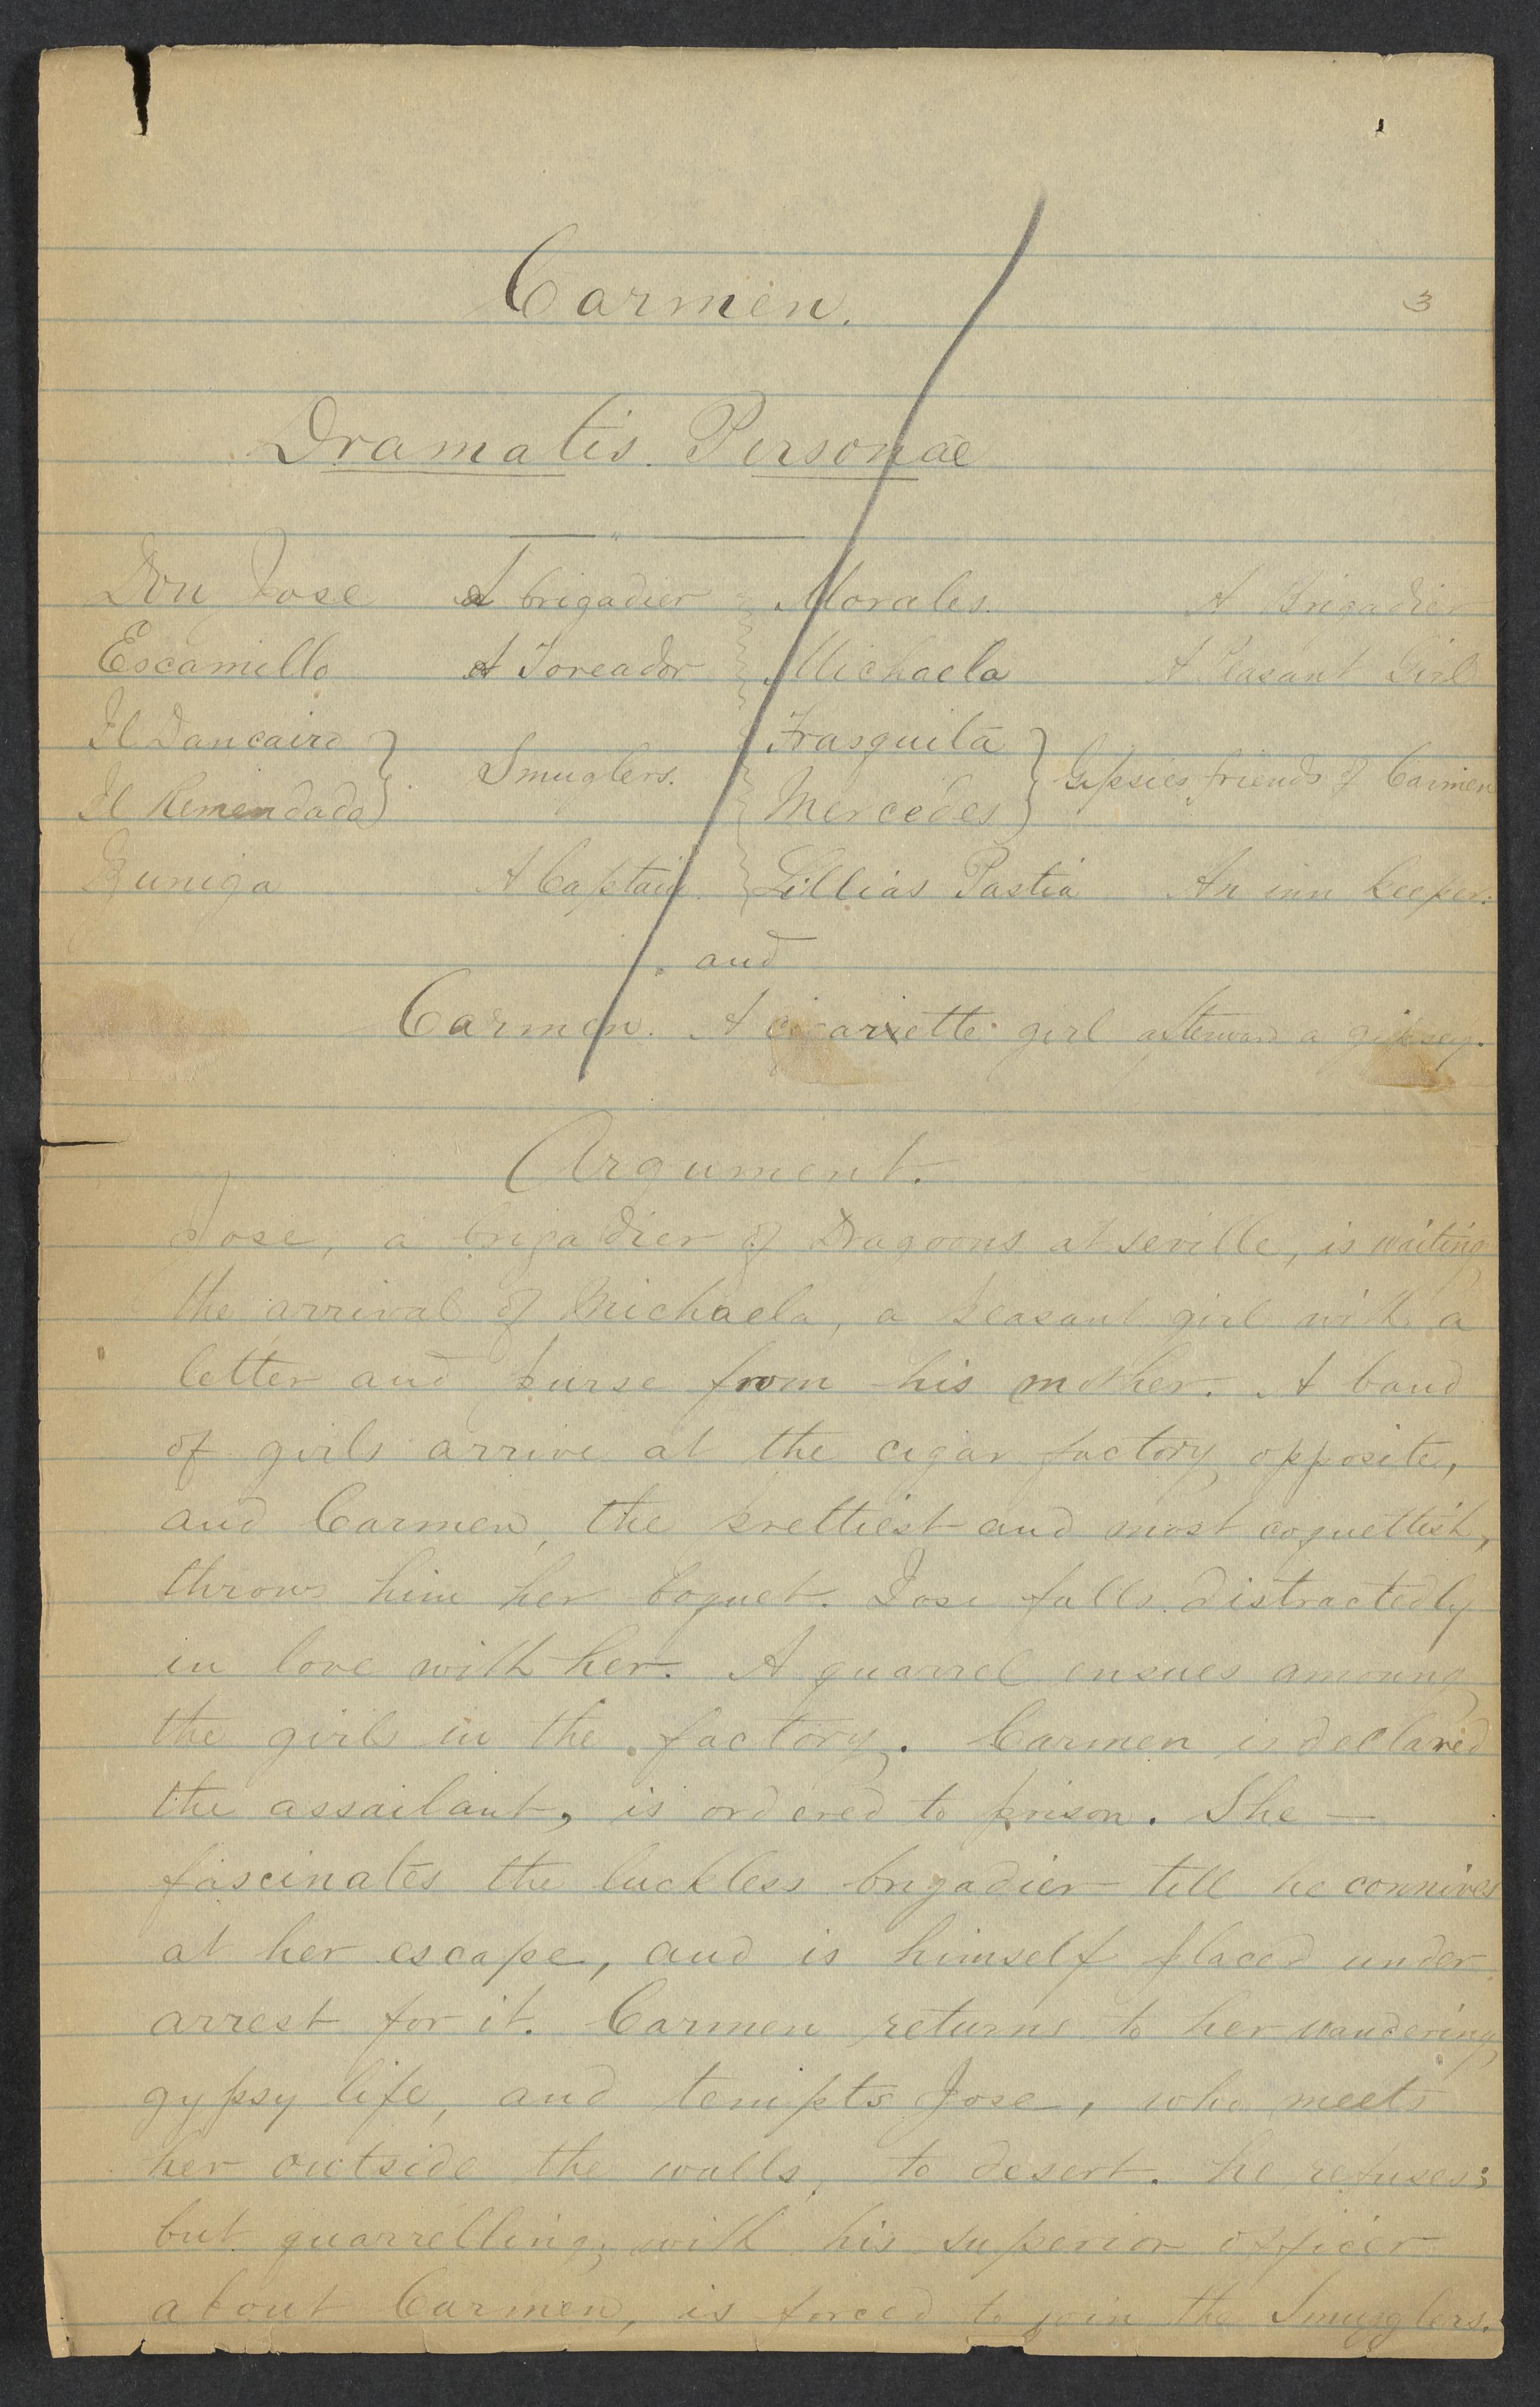 Carmen.
3
Dramatis Personae
Don Jose A brigadier Morales. A Brigadier
Escamillo A Toreador Michaela A Peasant Girl
Il Dancairo Frasquita
Smuglers. Gipsies friends of Carmen
Il Remendado Mercedes
Zuniga A Captain. Lillias Pastia An inn keeper.
and
Carmen. A cigariette girl afterward a gipsey.
Argument.
Jose, a brigadier of Dragoons at seville, is waiting
the arrival of Michaela, a peasant girl with a
letter and purse from his mother. A band
of girls arrive at the cigar factory opposite,
and Carmen, the prettiest and most coquettish,
throws him her boquet. Jose falls distractedly
in love with her. A quarrel ensues amoung
the girls in the factory. Carmen is declared
the assailant, is ordered to prison. She —
fascinates the luckless brigadier till he connives
at her escape, and is himself placed under
arrest for it. Carmen returns to her wandering
gypsy life, and tempts Jose, who meets
her outside the walls, to desert. he refuses;
but quarrelling, with his superior officer
about Carmen, is forced to join the Smugglers.